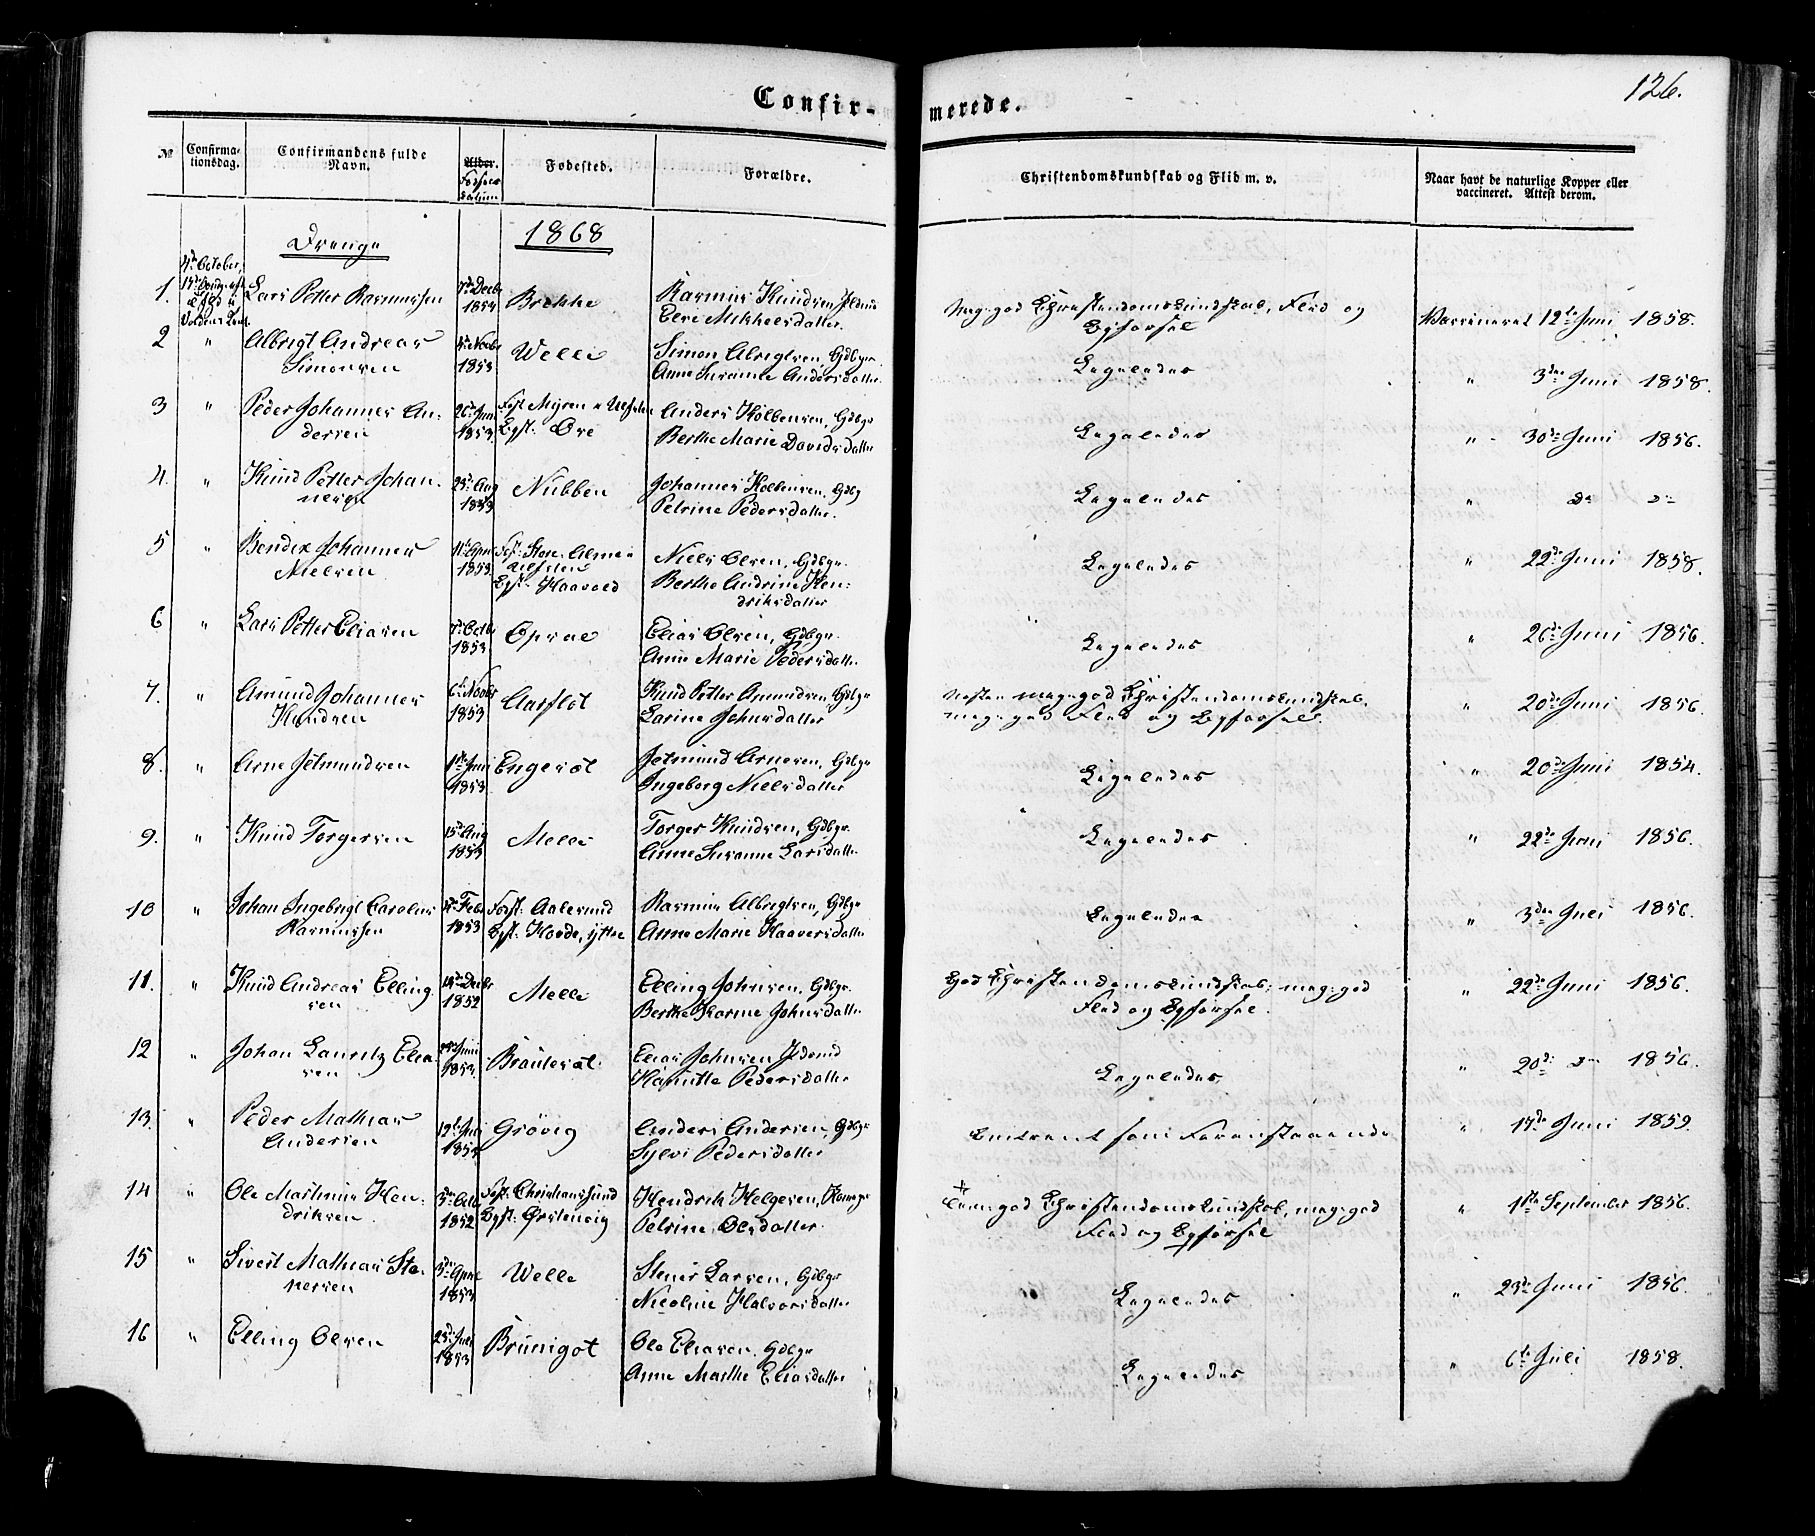 126.
Confir-merede.
№ Confirmationsdag. Confirmandens fulde Navn. Alder. Fødsels Datum Fødested. Forældre. Christendomskundskab og Flid m. v. Naar havt de naturlige Kopper eller vaccineret. Attest derom.
Drenge 1868
4de October,
1. Lars Petter Rasmussen 7de Decbr 1853 Brekke Rasmus Knudsen
Mikkelsdatter. Meg: god Christendomskundskab, Flid og Opførsel Vaccineret 12te Juni 1858.
2 " Albrigt Andreas Simonsen Novbr 1853 Welle Simon Albrigtsen, Gdbgr
Anne Susanne Andersdatter. Ligeledes " 3die Juni 1858.
3 " Peder Johannes Andersen 26de Juni 1853. Føst: Myren Bgst: Øve Anders Kolbensen, Gdbgr
Berthe Marie Davidsdatter Ligeledes " 30de Juni 1856.
4. " Knud Petter Johannesen Aug 1853 Nubben Johannes Kolbensen, Gdbg
Petrine Pedersdatter. Ligeledes " do do
5 " Bendix Johannes Nielsen April 1853. Føst: Store Bgst: Haavold Niels Olsen, Gdbgr.
Berthe Andrine Hendriksdatter Ligeledes " 22de Juni 1858.
6 " Lars Petter Eliasen 7de Octbr 1853. Opsal Elias Olsen, Gdbgr.
Anne Marie Pedersdatter Ligeledes " 26de Juni 1856.
7. " Amund Johannes Knudsen 6te Novbr 1853 Aarflot Knud Petter Amundsen, Gdbgr
Larine Johnsdatter Næsten meg: god Christendomskundskab, meg: god Flid og Opførsel. " 20de Juni 1856.
8. " Arne Jetmundsen Juni 1853 Engeset Jetmund Arnesen, Gdbgr
Ingeborg Nielsdatter Ligeledes " 20de Juni 1854.
9. " Knud Torgersen 15de Aug 1853 Melle Torger Knudsen, Gdbgr.
Anne Susanne Larsdatter Ligeledes " 22de Juni 1856.
10 " Johan Ingebrigt Carolus Rasmussen Feb 1853 Føst: Aalesund Bgst: Hovde, yttre Rasmus Albrigtsen, Gdbgr
Anne Marie Haaversdatter Ligeledes " 3die Juli 1856.
11. " Knud Andreas Ellingsen Decbr 1852 Melle Elling Johnsen, Gdbgr.
Berthe Karine Johnsdatter God Christendomskundskab; meg: god Flid og Opførsel. " 22de Juni 1856.
12 " Johan Lauritz Eliasen Juni 1853. Brautesæt. Elias Johnsen
Pedersdatter Ligeledes " 20de do 1856.
13. " Peder Mathias Andersen 12te 1854 Grøvig Anders Andersen, Gdbgr
Sylvi Pedersdatter Omtrent som Foranstaaende " 17de Juni 1859.
14 " Ole Martinus Hendriksen Octb 1852 Føst: Christianssund Bgst: Ørstenvig Hendrik Helgesen,
Petrine Olsdatter. god Christendomskundskab, meg: god Flid og Opførsel " 1ste September 1856.
15 " Sivert Mathias Stenersen 3de April 1853 Welle Stener Larsen, Gdbgr
Nicoline Halvorsdatter Ligeledes " 23de Juni 1856.
16 " Elling Olsen 23de Juli 1853 Brunigot Ole Eliasen, Gdbgr
Anne Marthe Eliasdatter Ligeledes " 6te Juli 1858.